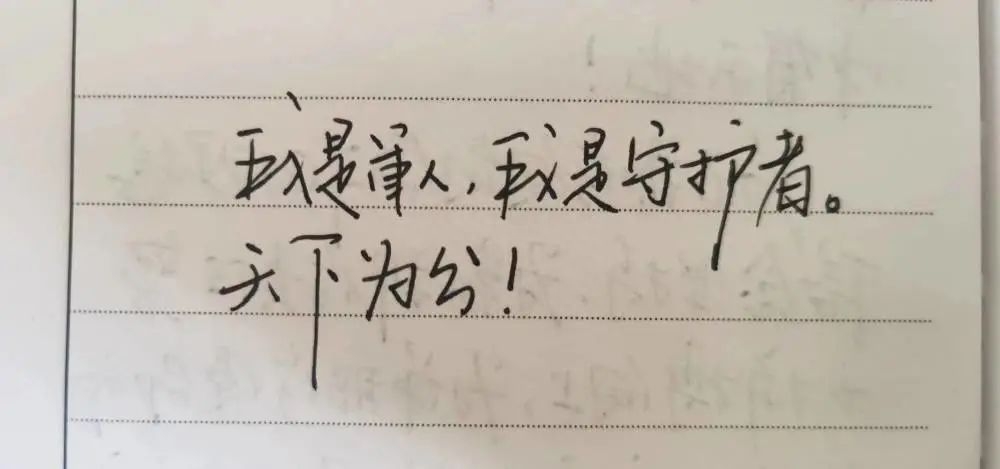 我是军人，我是守护者。
天下为公！